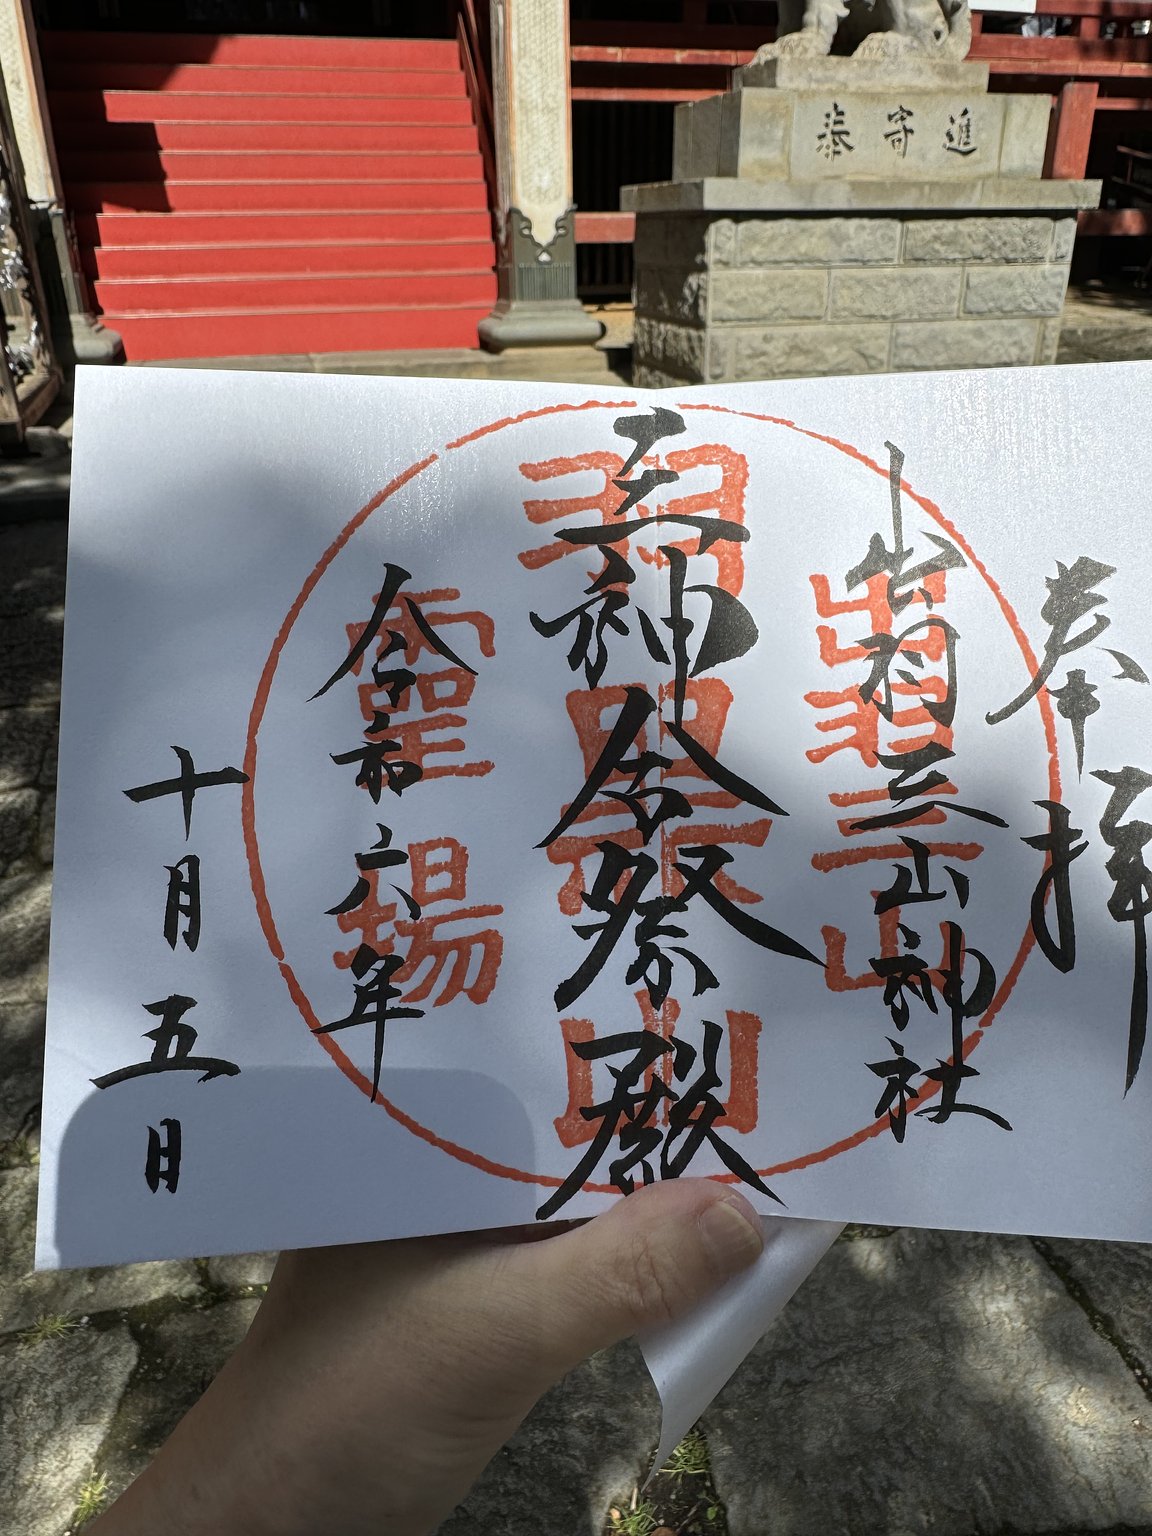 奉寄進
奉拝
出羽三山神社
三神合祭殿
令和六年
十月五日
出羽三山
羽黒山
霊場